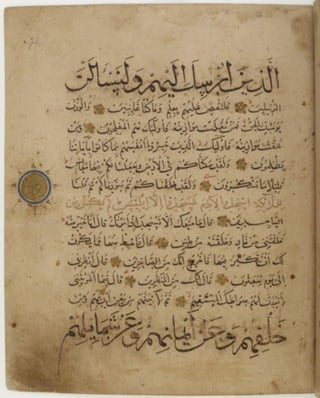 الذين ارسل اليهم ولنسألن
المرسلين فلنقصن عليهم بعلم وما كنا غائبين والوزن
يومئذ الحق فمن ثقلت موازينه فأولئك هم المفلحون ومن
خفت موازينه فأولئك الذين خسروا أنفسهم بما كانوا بآياتنا
يظلمون ولقد مكناكم في الأرض وجعلنا لكم فيها معايش
قليلا ما تشكرون ولقد خلقناكم ثم صورناكم ثم قلنا
للملائكة اسجدوا لآدم فسجدوا إلا إبليس لم يكن من
الساجدين قال ما منعك ألا تسجد إذ أمرتك قال أنا خير منه
خلقتني من نار وخلقته من طين قال فاهبط منها فما يكون
لك أن تتكبر فيها فاخرج إنك من الصاغرين قال أنظرني
إلى يوم يبعثون قال إنك من المنظرين قال فبما أغويتني
لأقعدن لهم صراطك المستقيم ثم لآتينهم من بين أيديهم ومن
خلفهم وعن أيمانهم وعن شمائلهم